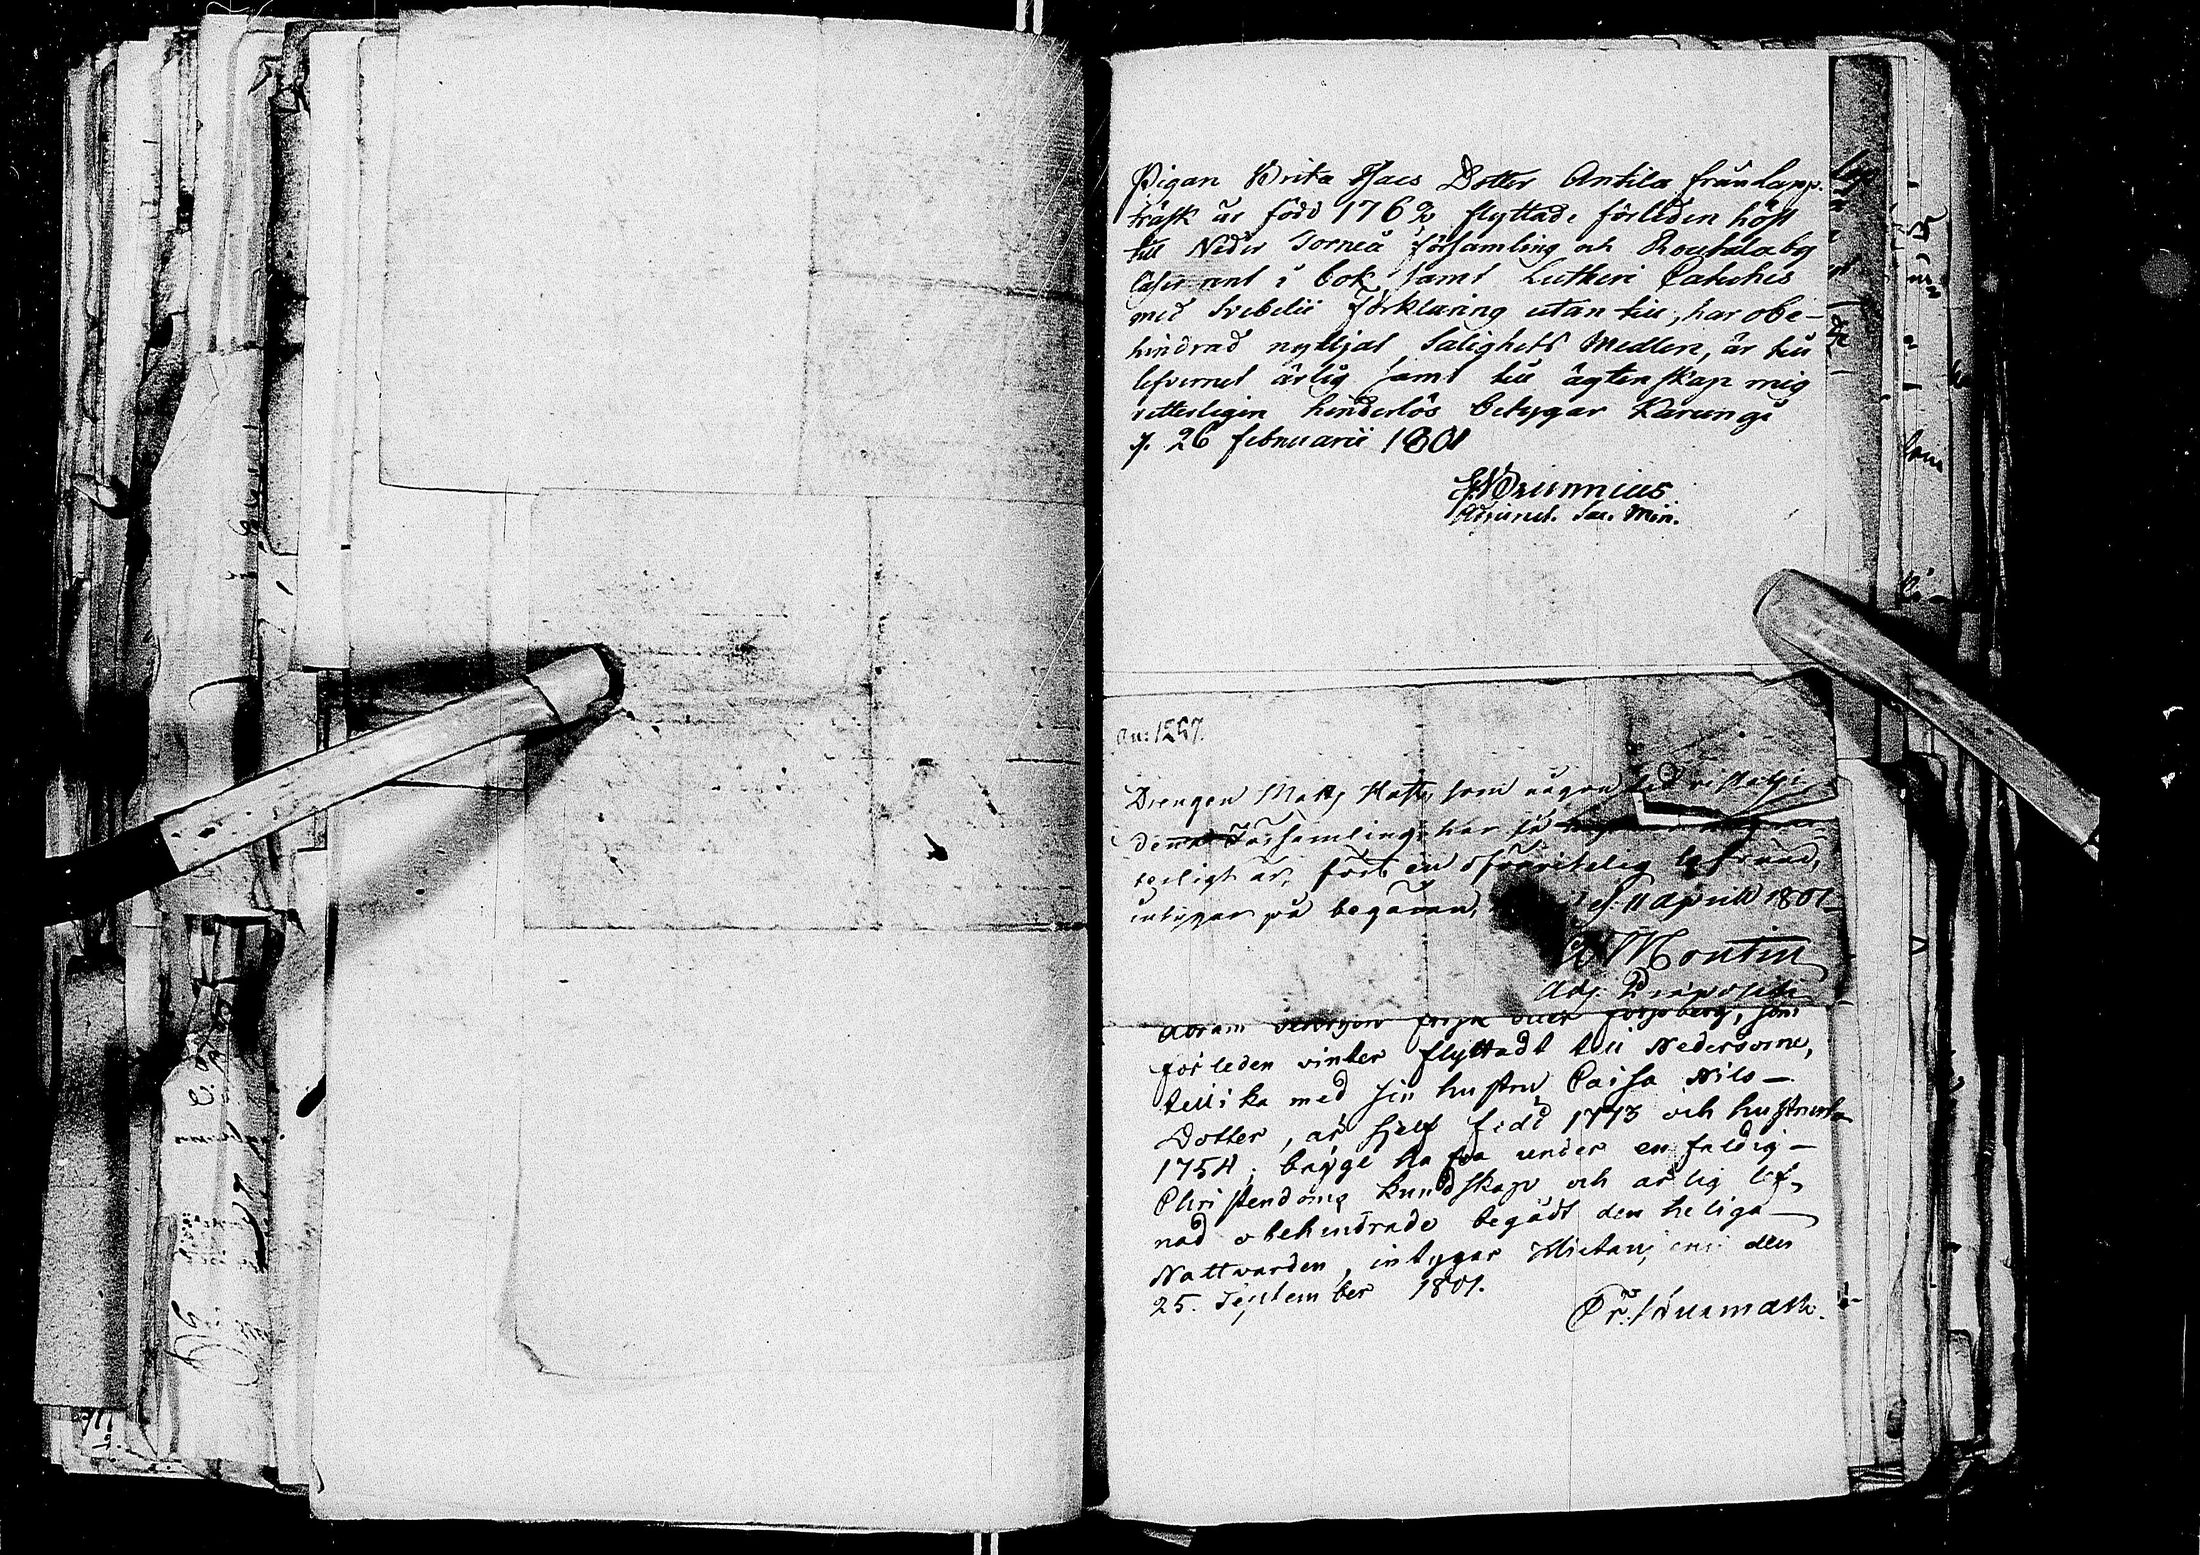 Pigan Brita Isacs Dotter Antila från Lapp-
träsk är född 1762 flyttade förleden höst
till Neder Torneå församling och Roukalaby
läser rent i bok samt Lutheri Catches
med Svebelii förklaring utan till, har obe-
hindrad nyttjat Salighets Medlen, är till
lefvernet ärlig samt till ägtenskap mig
vetterligen hinderlös betygar Karungi
d. 26 februarii 1801
Brunnius
Adjunct. Sac. Min.
An: 1257.
Drengen Matts som någon tid vistats i
denna Församling, har så
terligt är, fört en oförvitelig lefnad,
intygar på begäran, d. 11 April 1801
Montin
Adj. Præpositi
Abram eller forsberg, som
förleden vinter flyttadt till Nedertorne,
tillika med sin hustru Caisa Nils-
Dotter, är sjelf född 1773 och hustrun
1754; bägge hafva under enfaldig
Christendoms kundskap och ärlig lef-
nad obehindrade begådt den heliga
Nattvarden, intygar Hietaniemi den
25. September 1801.